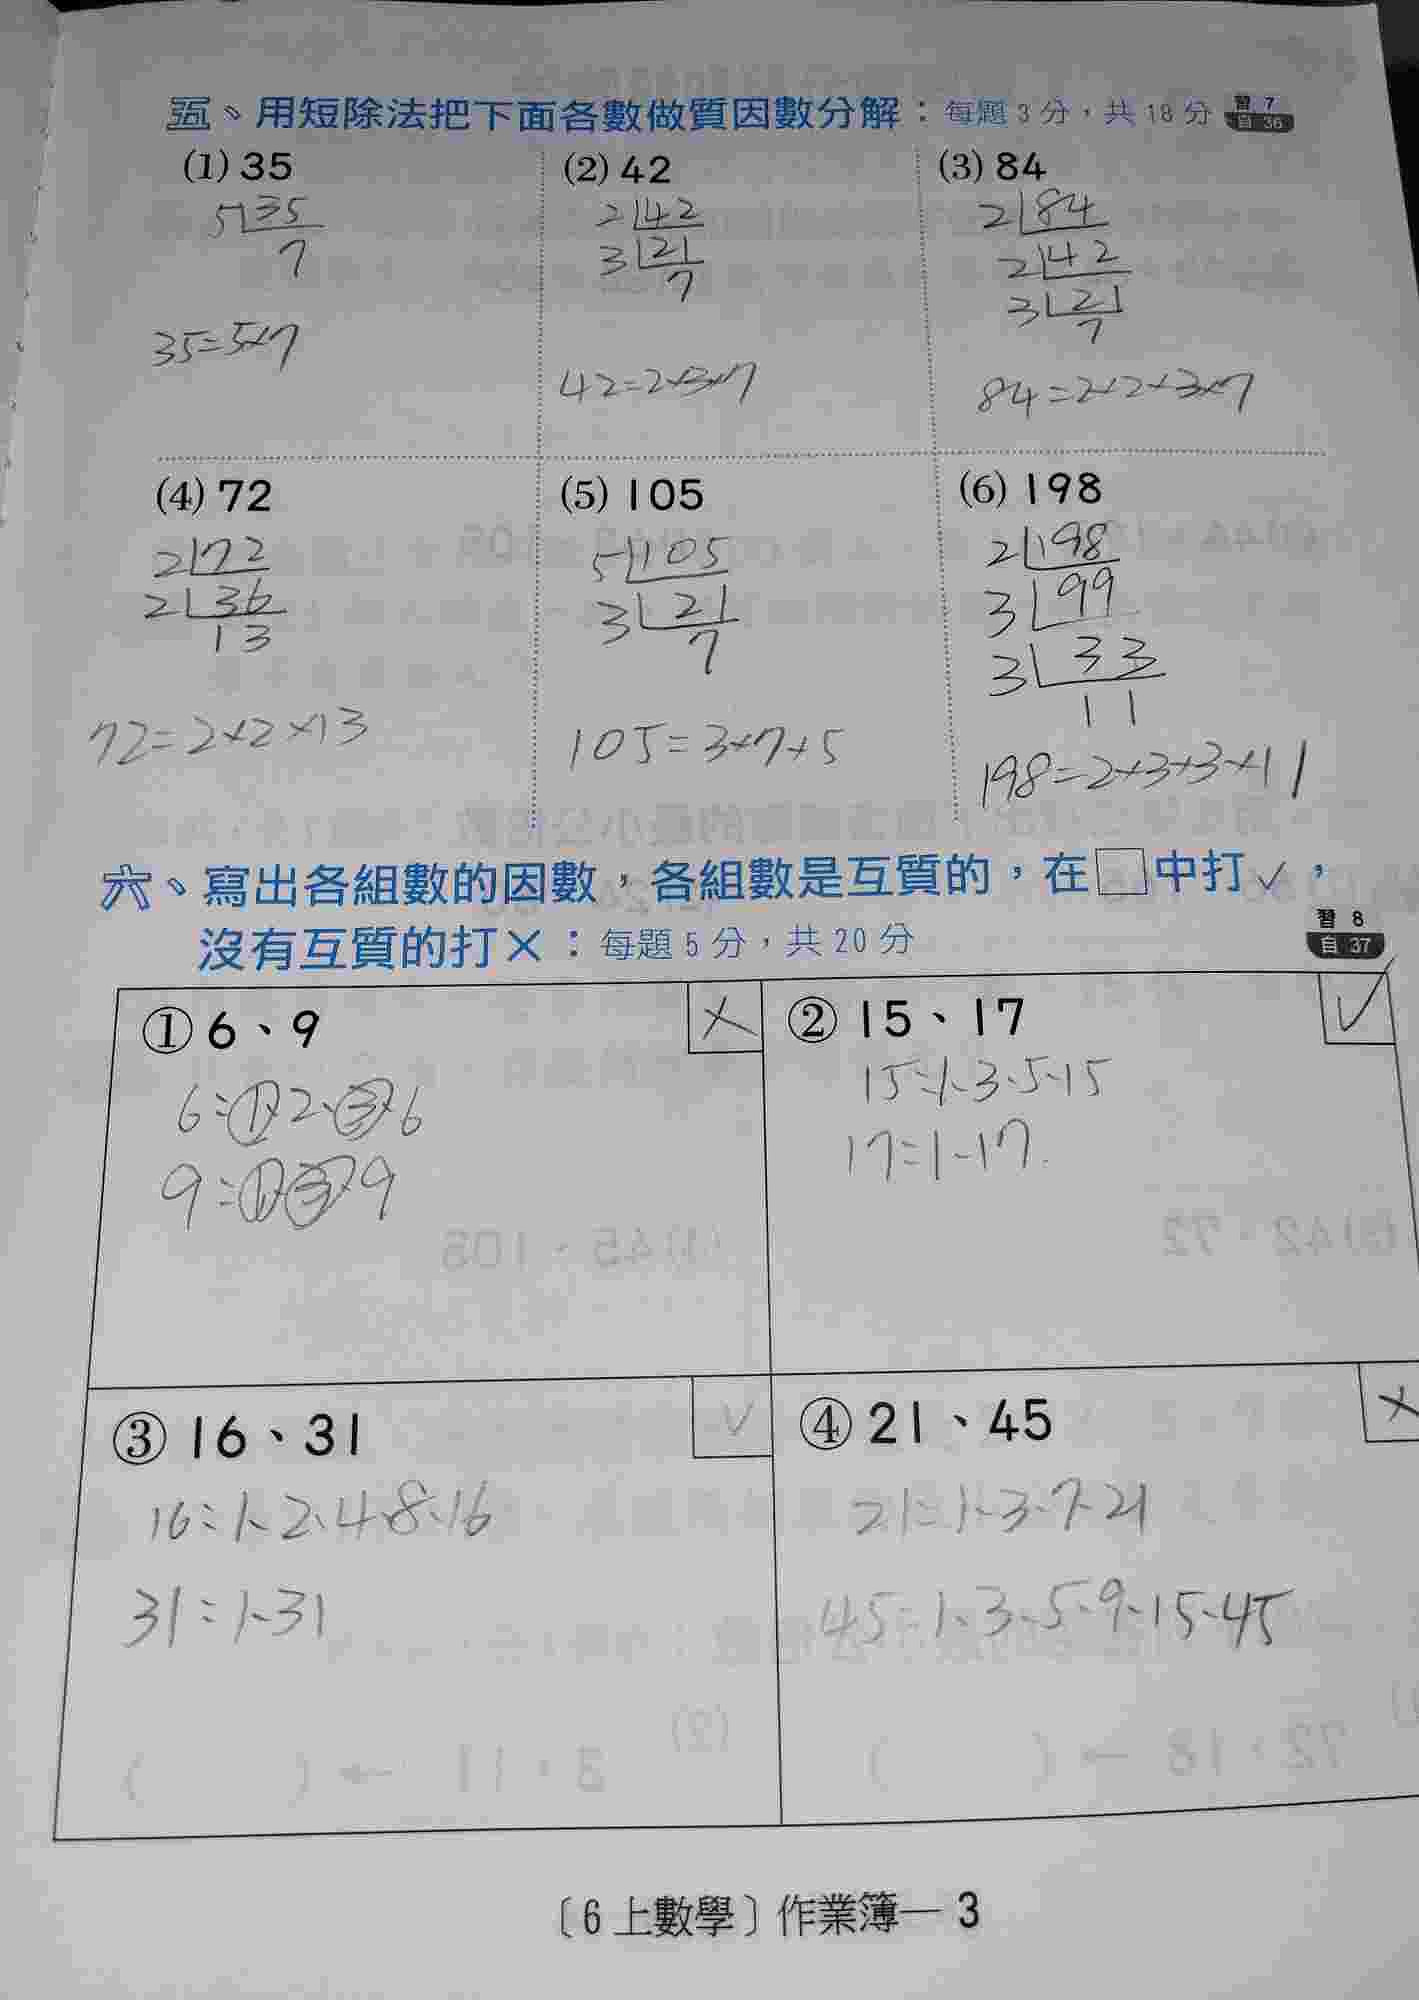 五、用短除法把下面各數做質因數分解：每題3分，共18分 習7 自36
(1) 35
5 35
7
35=5×7
(2) 42
2 42
3 21
7
42=2×3×7
(3) 84
2 84
2 42
3 21
7
84=2×2×3×7
(4) 72
2 72
2 36
13
72=2×2×13
(5) 105
5 105
3 21
7
105=3×7×5
(6) 198
2 198
3 99
3 33
11
198=2×3×3×11
六、寫出各組數的因數，各組數是互質的，在□中打✓，
沒有互質的打×：每題5分，共20分 習8 自37
① 6、9 ×
6=1、2、3、6
9=1、3、9
② 15、17 ✓
15=1、3、5、15
17=1、17
③ 16、31 ✓
16=1、2、4、8、16
31=1、31
④ 21、45 ×
21=1、3、7、21
45=1、3、5、9、15、45
〔6上數學〕作業簿—3